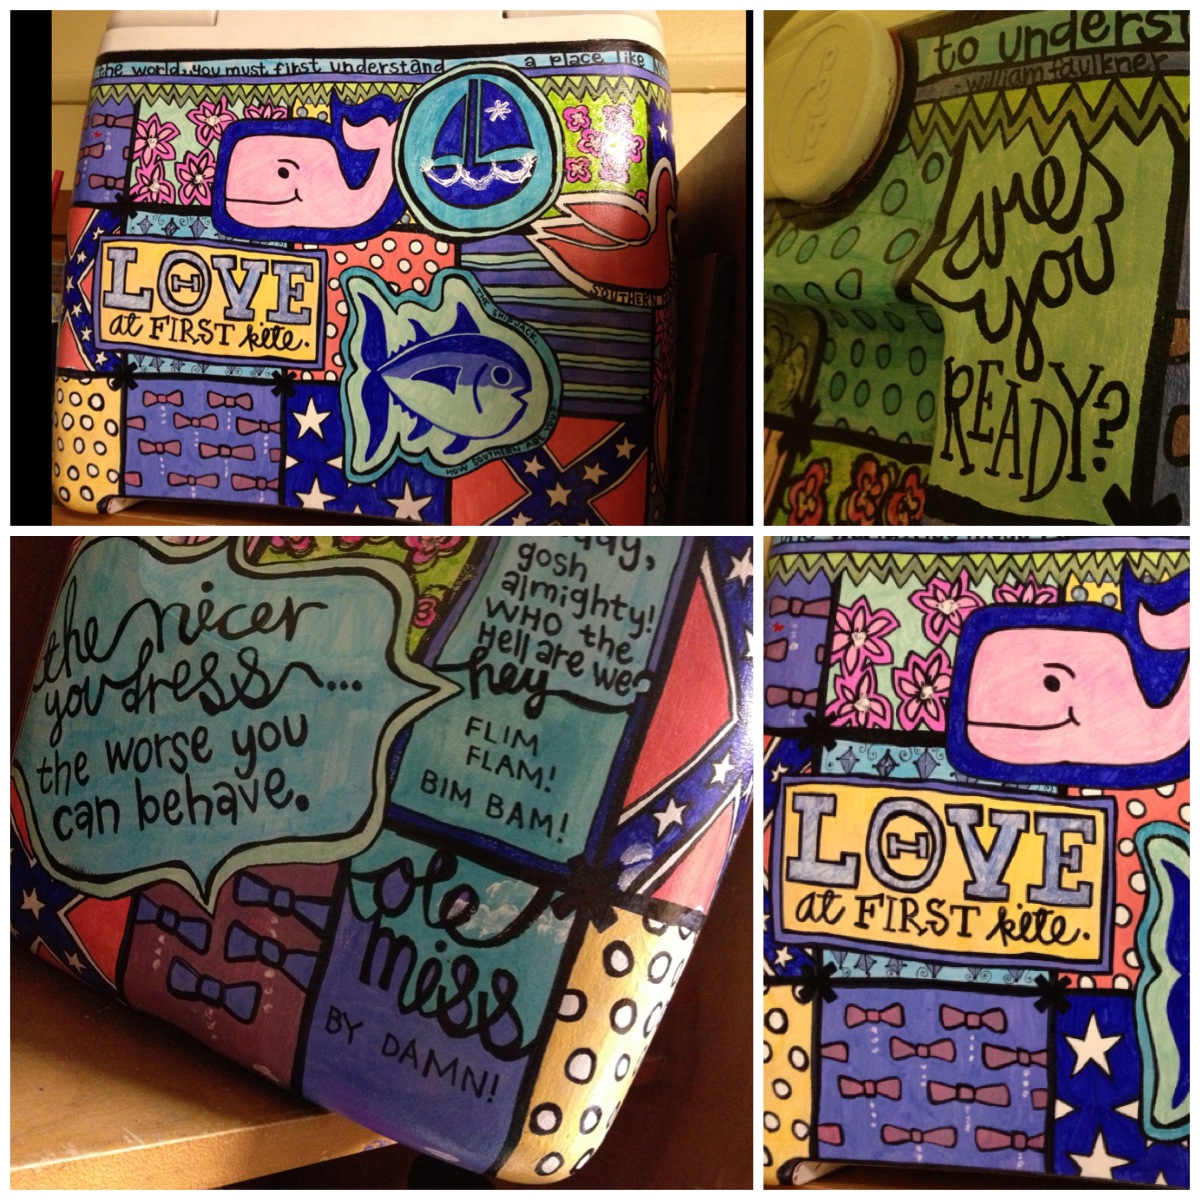 the world, you must first understand a place like
THE SKIPJACK.
SOUTHERN
LOVE
at FIRST kite.
HOW SOUTHERN ARE YOU?
to underst
-william faulkner
are
you
READY?
the nicer
you dress...
the worse you
can behave.
gosh
almighty!
WHO the
Hell are we?
hey
FLIM
FLAM!
BIM BAM!
ole
miss
BY DAMN!
LOVE
at FIRST kite.